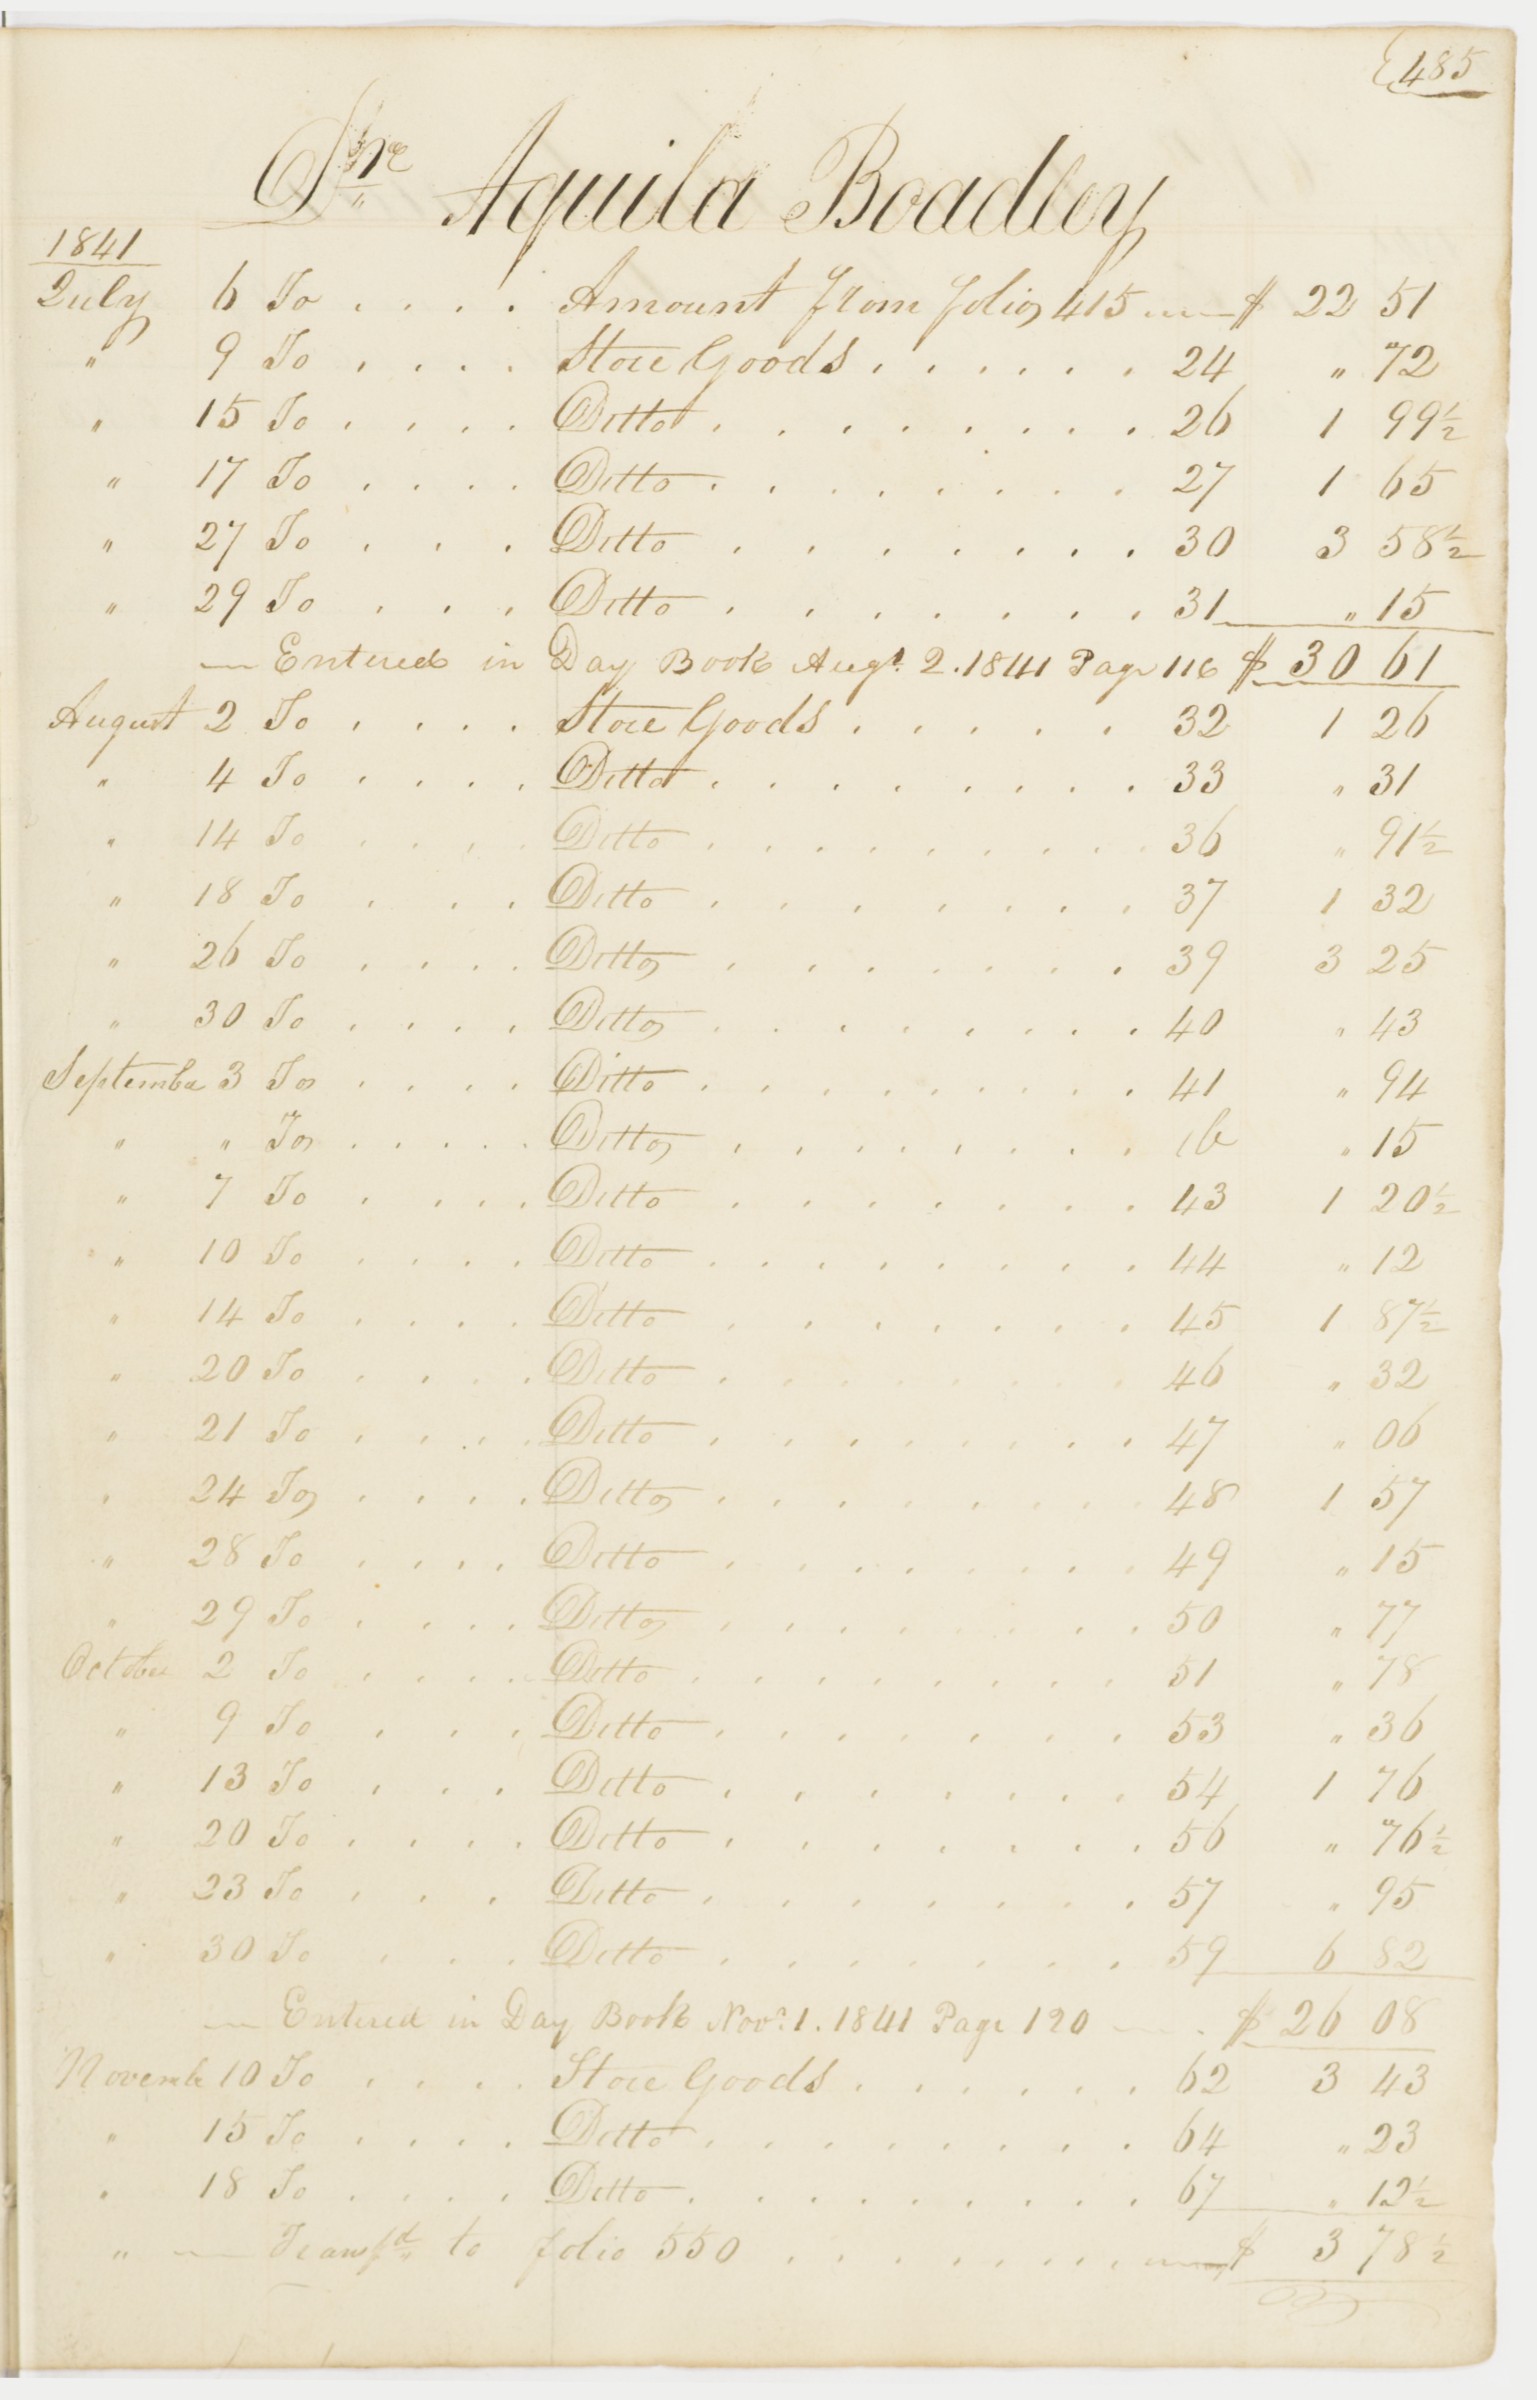 485
Dr. Aquila Boadley
1841
July 6 To . . . . Amount from folio 415 — $ 22 51
" 9 To . . . . Store Goods . . . . . . 24 " 72
" 15 To . . . . Ditto . . . . . . . . 26 1 99½
" 17 To . . . . Ditto . . . . . . . . 27 1 65
" 27 To . . . Ditto . . . . . . . 30 3 58½
" 29 To . . . Ditto . . . . . . . 31 " 15
— Entered in Day Book Augt. 2. 1841 Page 116 $ 30 61
August 2 To . . . . Store Goods . . . . . 32 1 26
" 4 To . . . . Ditto . . . . . . . . 33 " 31
" 14 To . . . . Ditto . . . . . . . . . 36 " 91½
" 18 To . . . Ditto . . . . . . . . 37 1 32
" 26 To . . . . Ditto . . . . . . . 39 3 25
" 30 To . . . . Ditto . . . . . . . . 40 " 43
September 3 To . . . . Ditto . . . . . . . . 41 " 94
" " To . . . . . Ditto . . . . . . . . ib " 15
" 7 To . . . . Ditto . . . . . . . 43 1 20½
" 10 To . . . . Ditto . . . . . . . . 44 " 12
" 14 To . . . . Ditto . . . . . . . 45 1 87½
" 20 To . . . . Ditto . . . . . . . . 46 " 32
" 21 To . . . . Ditto . . . . . . . . 47 " 06
" 24 To . . . . Ditto . . . . . . . . 48 1 57
" 28 To . . . . Ditto . . . . . . . . 49 " 15
" 29 To . . . . Ditto . . . . . . . . 50 " 77
October 2 To . . . . Ditto . . . . . . . . 51 " 78
" 9 To . . . Ditto . . . . . . . 53 " 36
" 13 To . . . Ditto . . . . . . . 54 1 76
" 20 To . . . . Ditto . . . . . . . 56 " 76½
" 23 To . . . Ditto . . . . . . . 57 " 95
" 30 To . . . Ditto . . . . . . . 59 6 82
— Entered in Day Book Novr. 1. 1841 Page 120 — $ 26 08
Novembr 10 To . . . . Store Goods . . . . . . 62 3 43
" 15 To . . . . Ditto . . . . . . . . 64 " 23
" 18 To . . . . Ditto . . . . . . . . 67 " 12½
" — Transfd. to folio 550 . . . . . . . . — $ 3 78½